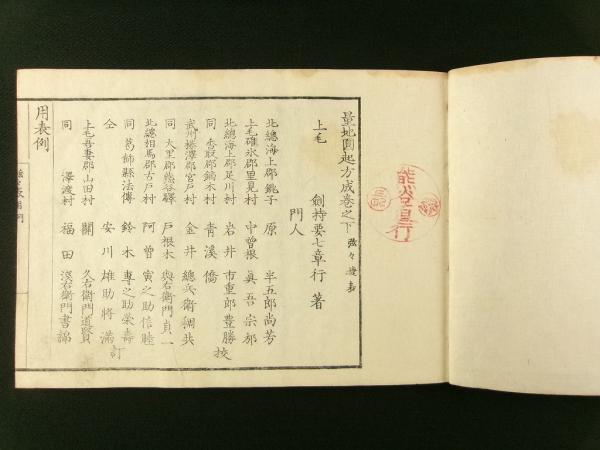 量地圓起方成卷之下
上毛 劍持要七章行 著
門人
北總海上郡銚子 原 半五郎尚芳
上毛碓氷郡里見村 中曽根 眞吾宗邡
北總海上郡足川村 岩井 市重郎豊勝
同 香取郡鏑木村 青溪 僑 挍
武州榛澤郡宮戸村 金井 總兵衛稠共
同 大里郡熊谷驛 戸根木 與右衛門貞一
北總相馬郡古戸村 阿曽 寅之助信睦
同 葛飾縣法傳 鈴木 專之助榮壽
仝 安川 雄助將滿 訂
上毛吾妻郡山田村 關 久右衛門道賢
同 澤渡村 福田
用表例